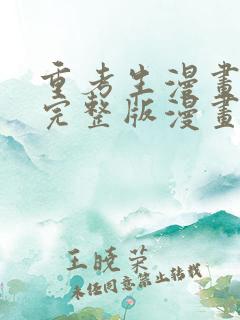 重考生漫畫
完整版漫畫
王曉荣
未经同意禁止转载